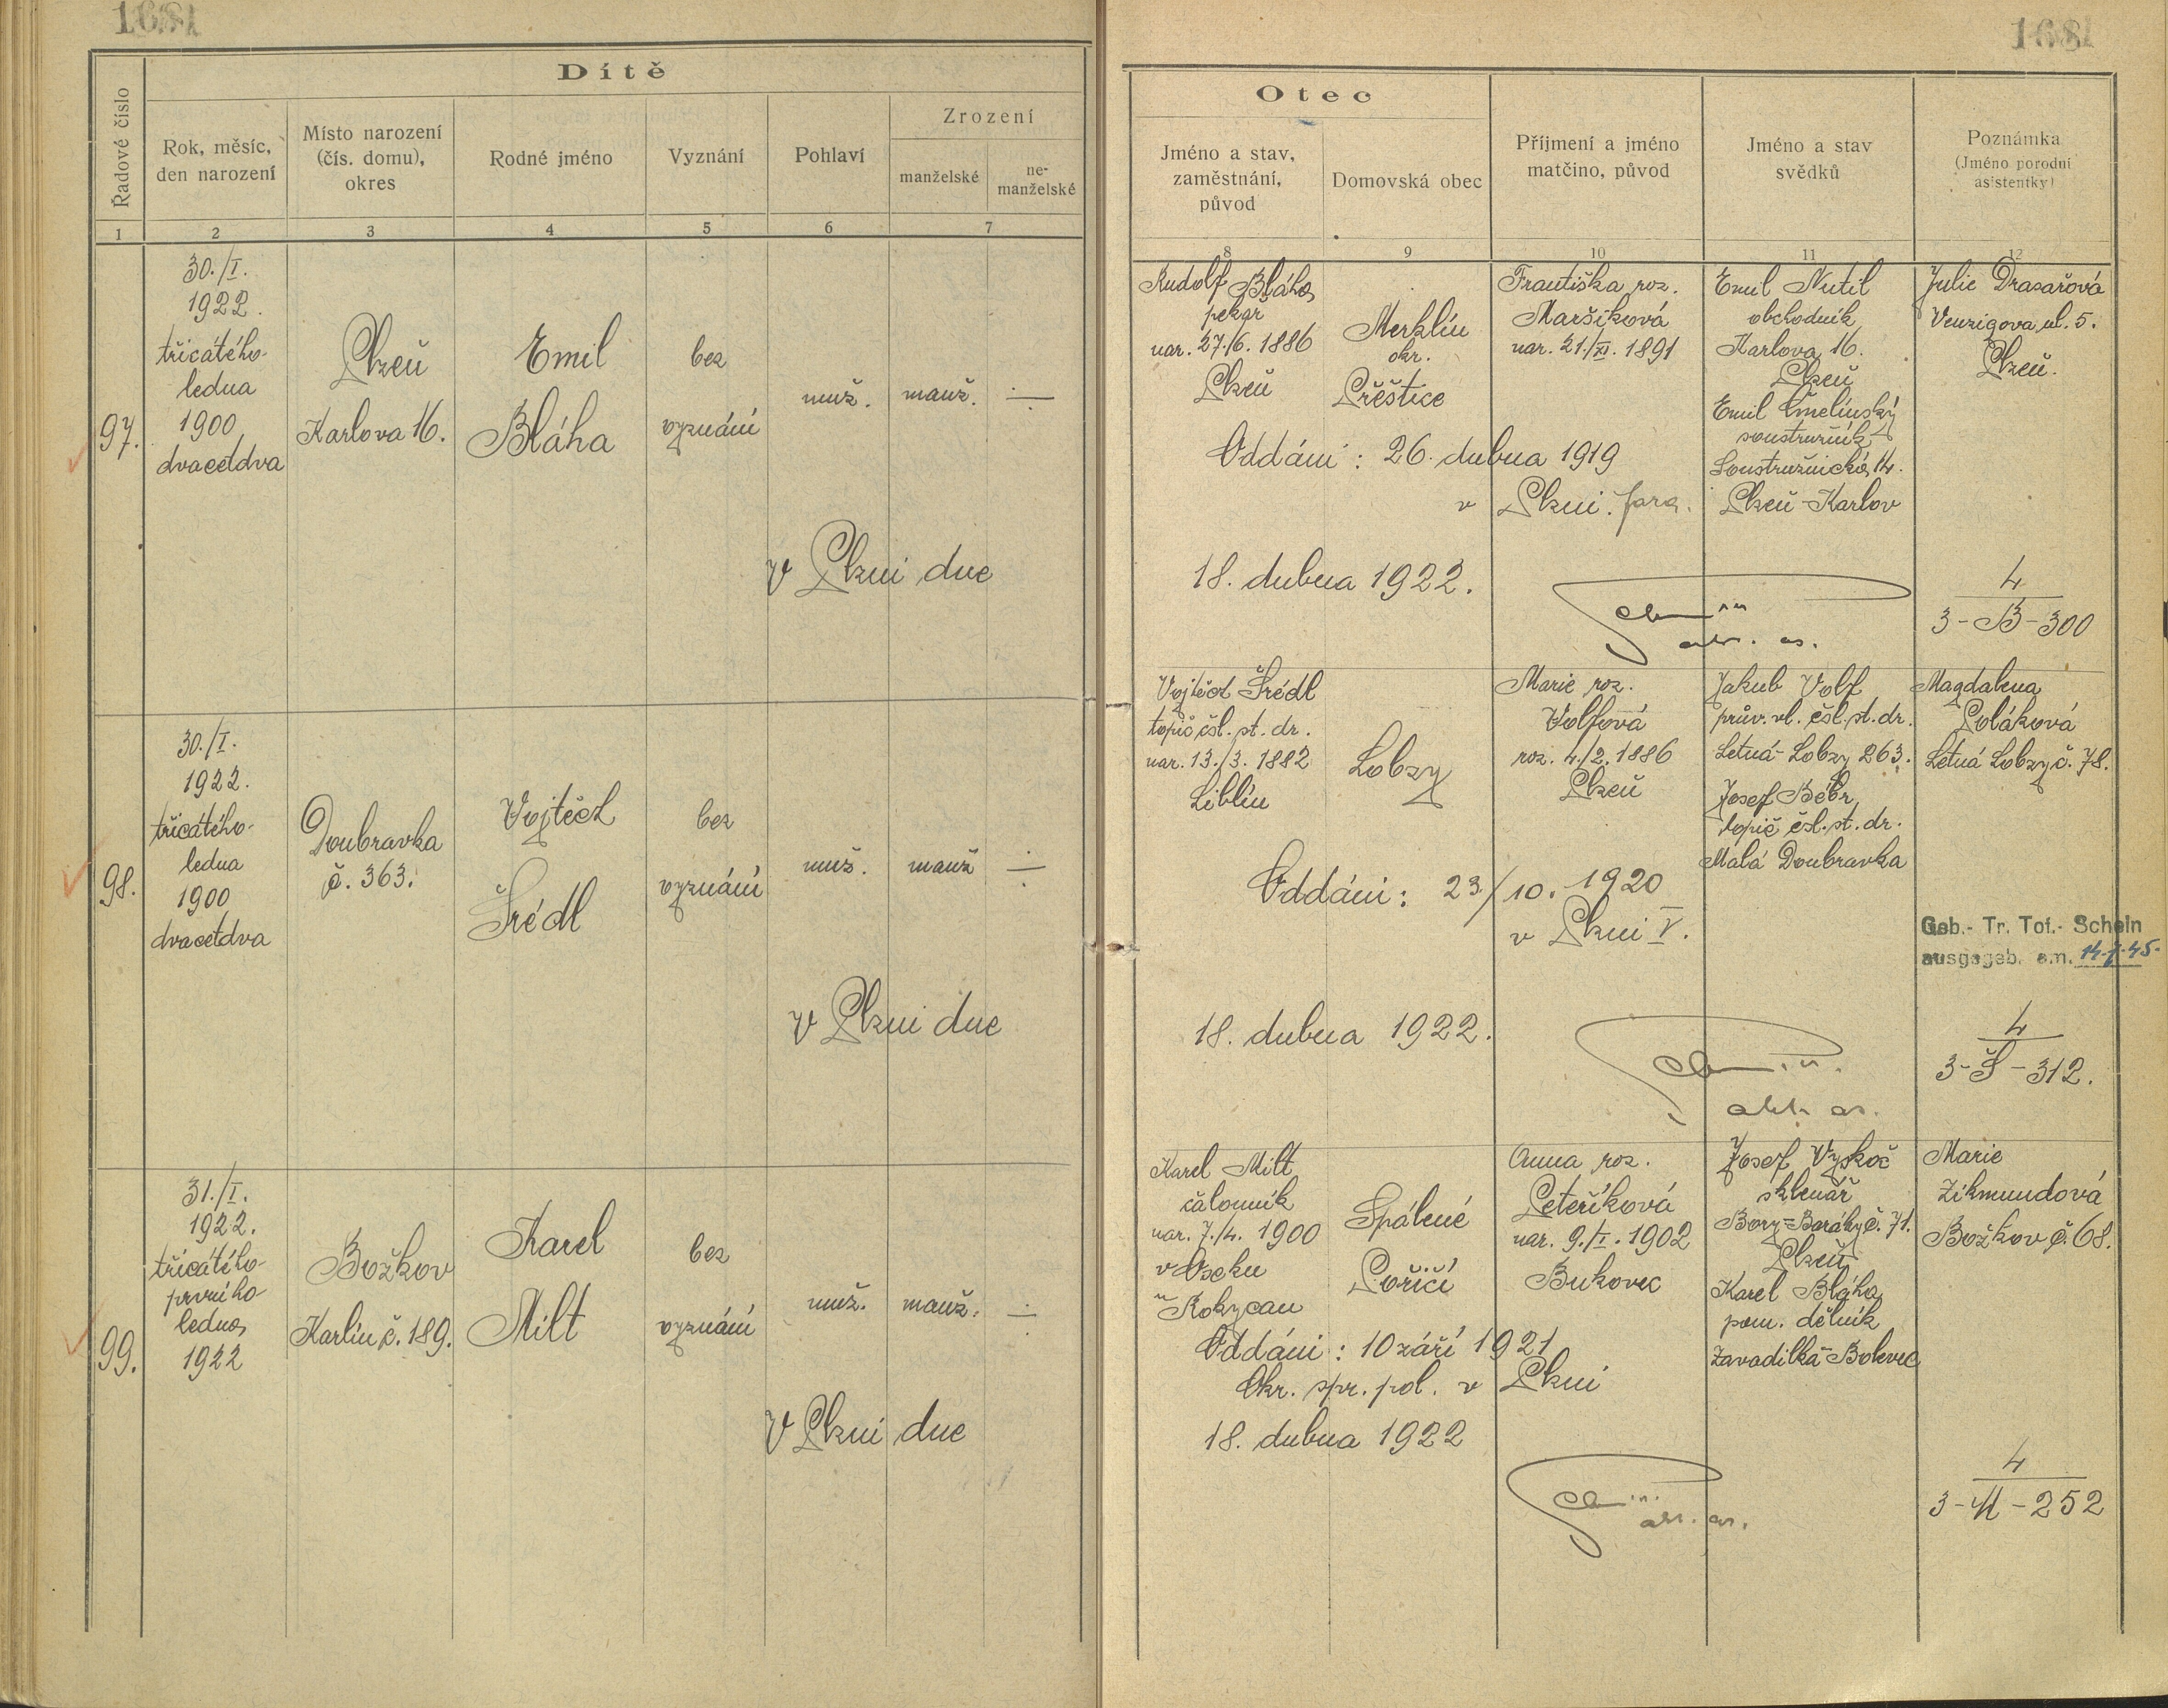 168
168
Dítě
Řadové číslo
Rok, měsíc,
den narození
Místo narození
(čís. domu),
okres
Rodné jméno
Vyznání
Pohlaví
Zrození
manželské
ne-
manželské
1
2
3
4
5
6
7
Otec
Jméno a stav,
zaměstnání,
původ
Domovská obec
Příjmení a jméno
matčino, původ
Jméno a stav
svědků
Poznámka
(Jméno porodní
asistentky)
8
9
10
11
12
97.
30./I.
1922.
třicátého-
ledna
1900
dvacetdva
Plzeň
Karlova 16.
Emil
Bláha
bez
vyznání
muž.
manž.
÷
v Plzni dne
Rudolf Bláha
pekař
nar. 27./6. 1886
Plzeň
Merklín
okr.
Přeštice
Františka roz.
Maršíková
nar. 21./XI. 1891
Emil Nutil
obchodník
Karlova 16.
Plzeň
Emil Čmelínský
soustružník
Soustružnická 14.
Plzeň-Karlov
Julie Drasařová
Venzigova ul. 5.
Plzeň.
Oddáni: 26. dubna 1919
v Plzni. fara.
18. dubna 1922.
4
3-B-300
98.
30./I.
1922.
třicátého-
ledna
1900
dvacetdva
Doubravka
č. 363.
Vojtěch
Šrédl
bez
vyznání
muž.
manž
÷
v Plzni dne
Vojtěch Šrédl
topič čsl. st. dr.
nar. 13./3. 1882
Liblín
Lobzy
Marie roz.
Volfová
roz. 4./2. 1886
Plzeň
Jakub Volf
prův. vl. čsl. st. dr.
Letná-Lobzy 263.
Josef Bébr
topič čsl. st. dr.
Malá Doubravka
Magdalena
Poláková
Letná Lobzy č. 78.
Oddáni: 23/10. 1920
v Plzni V.
Geb.- Tr. Tot.- Schein
ausgegeb. am.
18. dubna 1922.
4
3-Š-312.
99.
31./I.
1922.
třicátého-
prvního-
ledna
1922
Božkov
Karlín č. 189.
Karel
Milt
bez
vyznání
muž.
manž.
÷
v Plzni dne
Karel Milt
čalouník
nar. 7./4. 1900
v Oseku
u Rokycan
Spálené
Poříčí
Anna roz.
Peteříková
nar. 9./I. 1902
Bukovec
Josef Vyskoč
sklenář
Bory=Baráky č. 71.
Plzeň
Karel Bláha
pom. dělník
Zavadilka-Bolevec
Marie
Zikmundová
Božkov č. 68.
Oddáni: 10 září 1921
Okr. spr. pol. v Plzni
18. dubna 1922
4
3-M-252